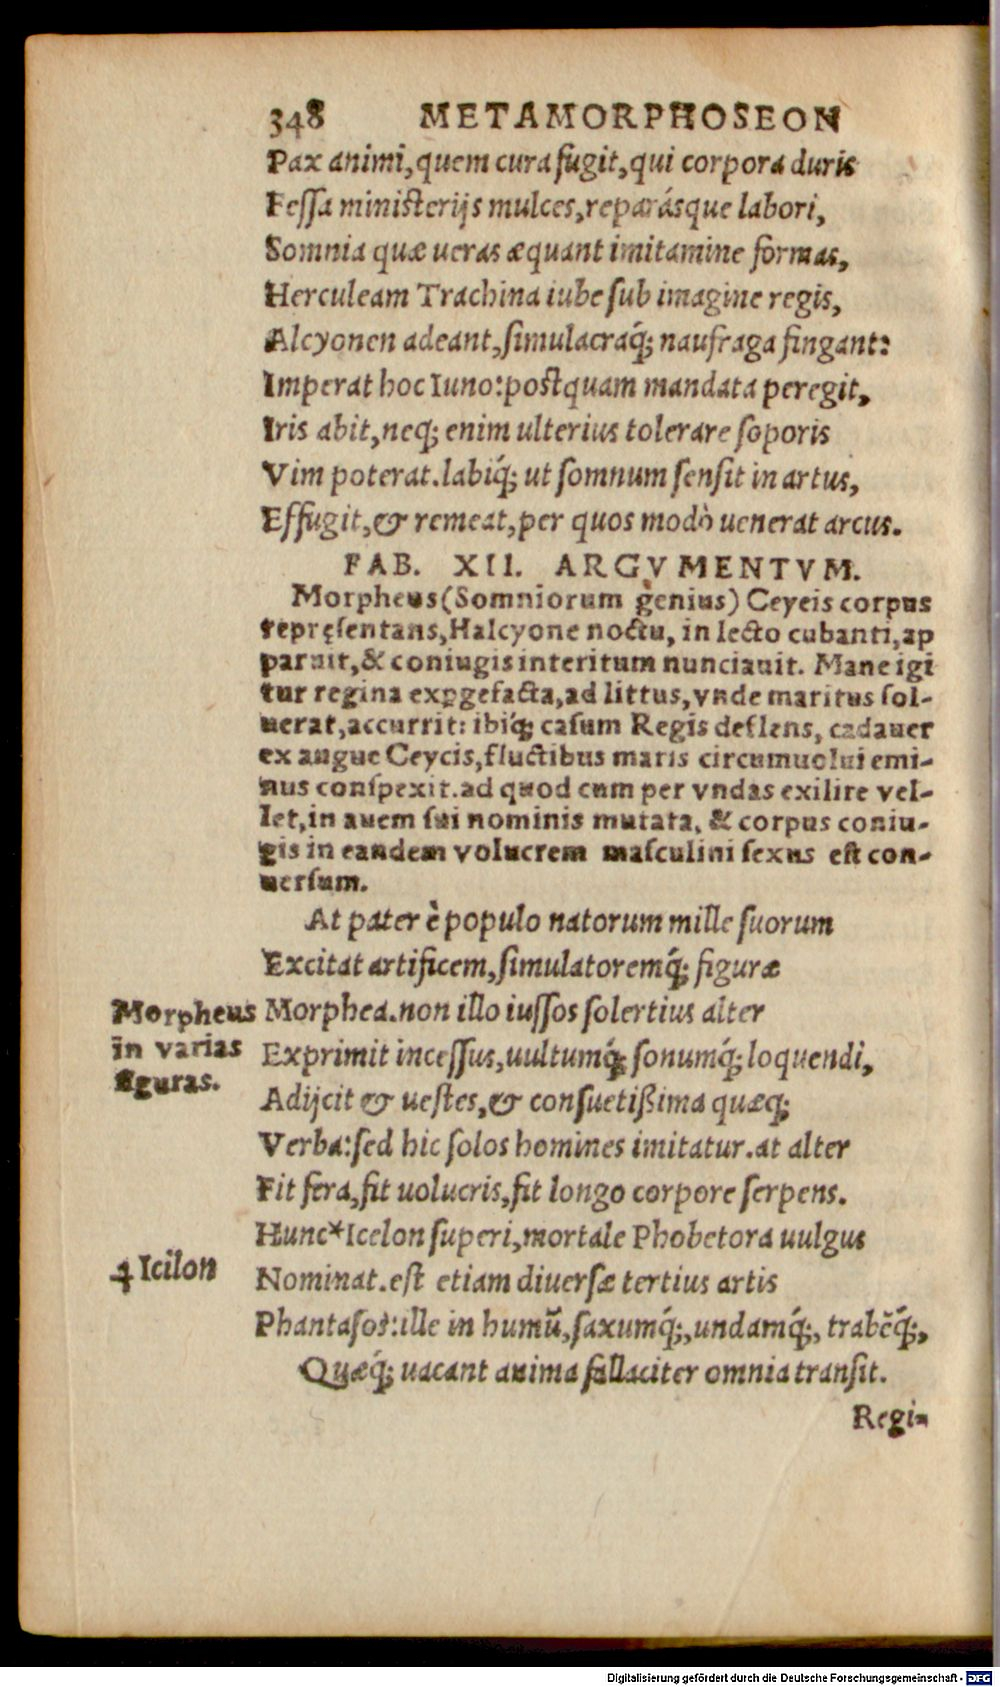 348 METAMORPHOSEON
Pax animi, quem cura fugit, qui corpora duris
Fessa ministerijs mulces, reparásque labori,
Somnia quæ ueras æquant imitamine formas,
Herculeam Trachina iube sub imagine regis,
Alcyonen adeant, simulacraq́; naufraga fingant:
Imperat hoc Iuno: postquam mandata peregit,
Iris abit, neq; enim ulterius tolerare soporis
Vim poterat. labiq́; ut somnum sensit in artus,
Effugit, & remeat, per quos modò uenerat arcus.
FAB. XII. ARGVMENTVM.
Morpheus (Somniorum genius) Ceyeis corpus
repręsentans, Halcyone noctu, in lecto cubanti, ap
paruit, & coniugis interitum nunciauit. Mane igi
tur regina expgefacta, ad littus, vnde maritus sol-
uerat, accurrit: ibiq́; casum Regis deflens, cadauer
ex angue Ceycis, fluctibus maris circumuolui emi-
nus conspexit. ad quod cum per vndas exilire vel-
let, in auem sui nominis mutata, & corpus coniu-
gis in eandem volucrem masculini sexus est con-
uersum.
At pater è populo natorum mille suorum
Excitat artificem, simulatoremq́; figuræ
Morpheus
in varias
figuras.
Morphea. non illo iussos solertius alter
Exprimit incessus, uultumq́; sonumq́; loquendi,
Adijcit & uestes, & consuetißima quæq;
Verba: sed hic solos homines imitatur. at alter
Fit fera, fit uolucris, fit longo corpore serpens.
Hunc *Icelon superi, mortale Phobetora uulgus
Icilon
Nominat. est etiam diuersæ tertius artis
Phantasos: ille in humũ, saxumq́;, undamq́;, trabẽq́;,
Quæq́; uacant anima fallaciter omnia transit.
Regi-
Digitalisierung gefördert durch die Deutsche Forschungsgemeinschaft - DFG